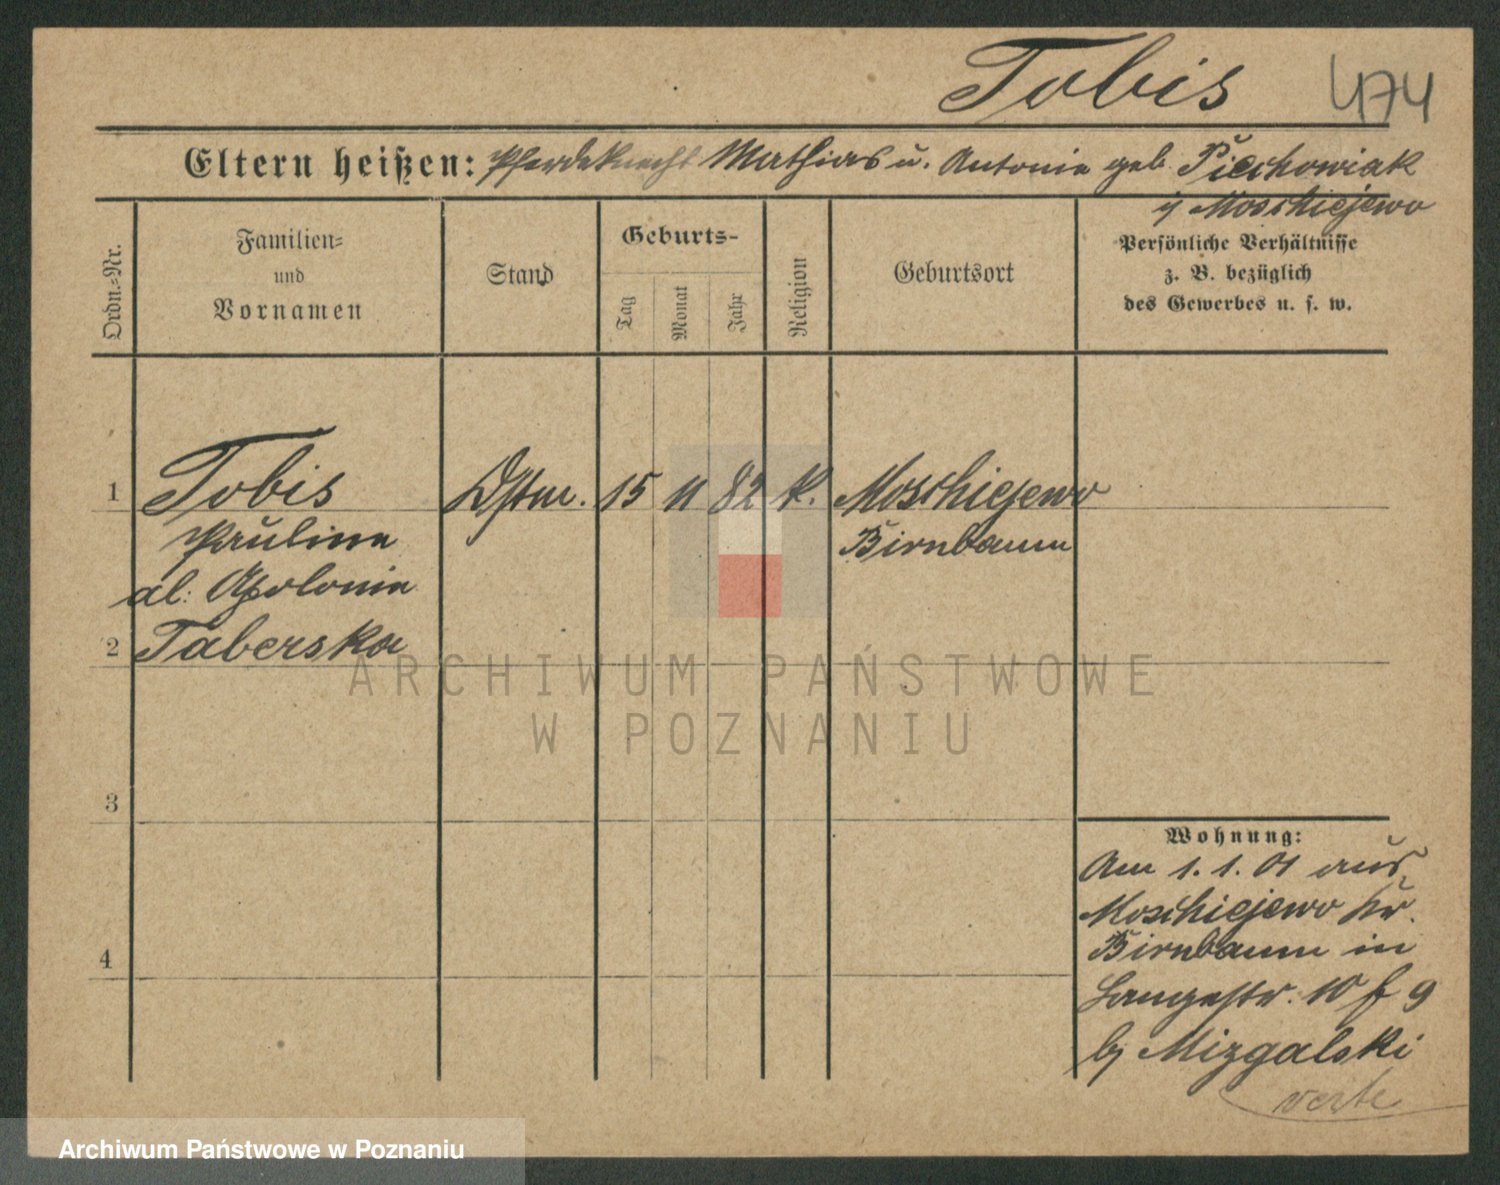 Tobis 474
Eltern heißen: Pferdeknecht Mathias u. Antonie geb. Piechowiak
ij Moschiejewo
Ordn.-Nr.
Familien-
und
Vornamen
Stand
Geburts-
Tag
Monat
Jahr
Religion
Geburtsort
Persönliche Verhältnisse
z. B. bezüglich
des Gewerbes u. s. w.
1 Tobis Dstm. 15 11 82 k. Moschiejewo
Paulina Birnbaum
al: Apolonia
2 Taberska
ARCHIWUM PAŃSTWOWE
W POZNANIU
3
4
Wohnung:
Am 1. 1. 01 aus
Moschiejewo Kr.
Birnbaum in
Langestr. 10 f 9
bj Mizgalski
verte
Archiwum Państwowe w Poznaniu